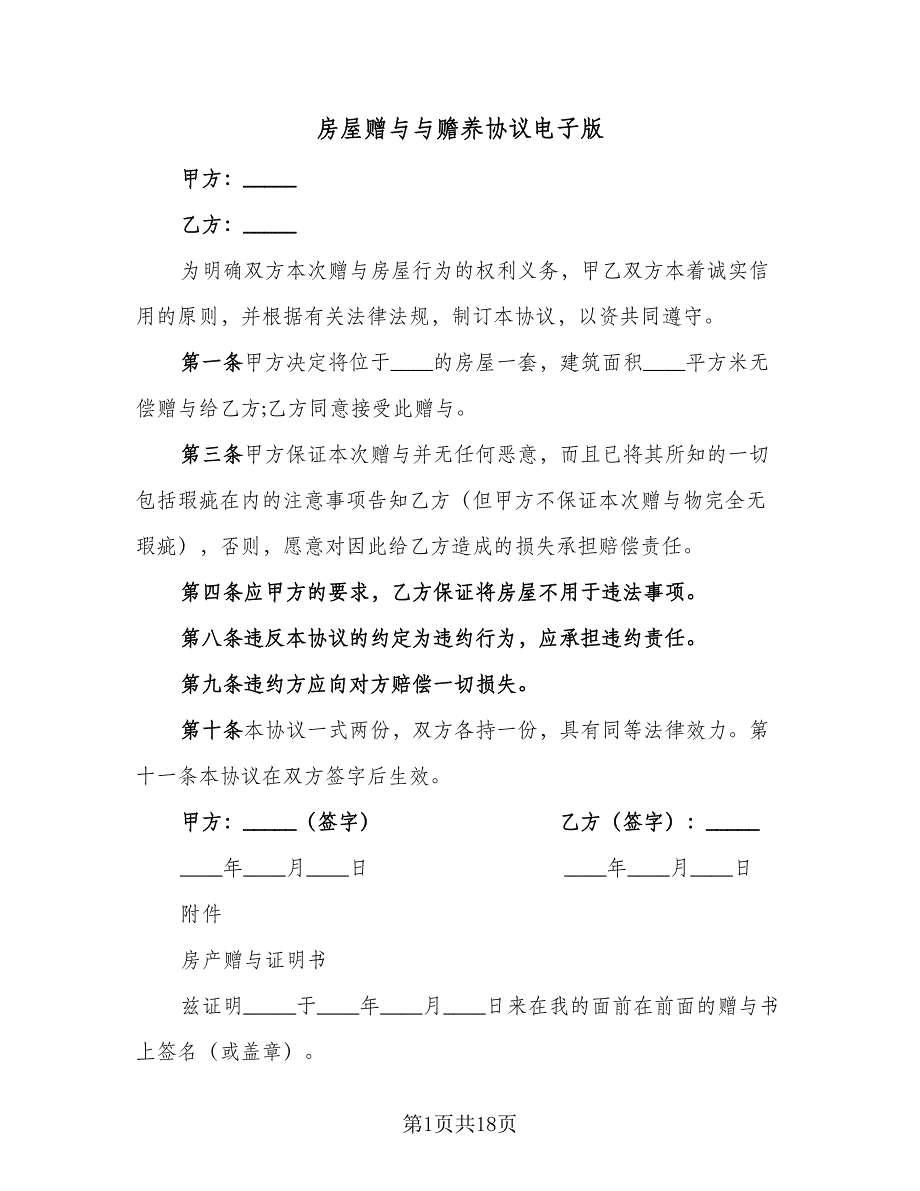 房屋赠与与赡养协议电子版
甲方：_____
乙方：_____
为明确双方本次赠与房屋行为的权利义务，甲乙双方本着诚实信
用的原则，并根据有关法律法规，制订本协议，以资共同遵守。
第一条甲方决定将位于____的房屋一套，建筑面积____平方米无
偿赠与给乙方;乙方同意接受此赠与。
第三条甲方保证本次赠与并无任何恶意，而且已将其所知的一切
包括瑕疵在内的注意事项告知乙方（但甲方不保证本次赠与物完全无
瑕疵），否则，愿意对因此给乙方造成的损失承担赔偿责任。
第四条应甲方的要求，乙方保证将房屋不用于违法事项。
第八条违反本协议的约定为违约行为，应承担违约责任。
第九条违约方应向对方赔偿一切损失。
第十条本协议一式两份，双方各持一份，具有同等法律效力。第
十一条本协议在双方签字后生效。
甲方：_____（签字） 乙方（签字）：_____
____年____月____日 ____年____月____日
附件
房产赠与证明书
兹证明_____于____年____月____日来在我的面前在前面的赠与书
上签名（或盖章）。
第1页共18页